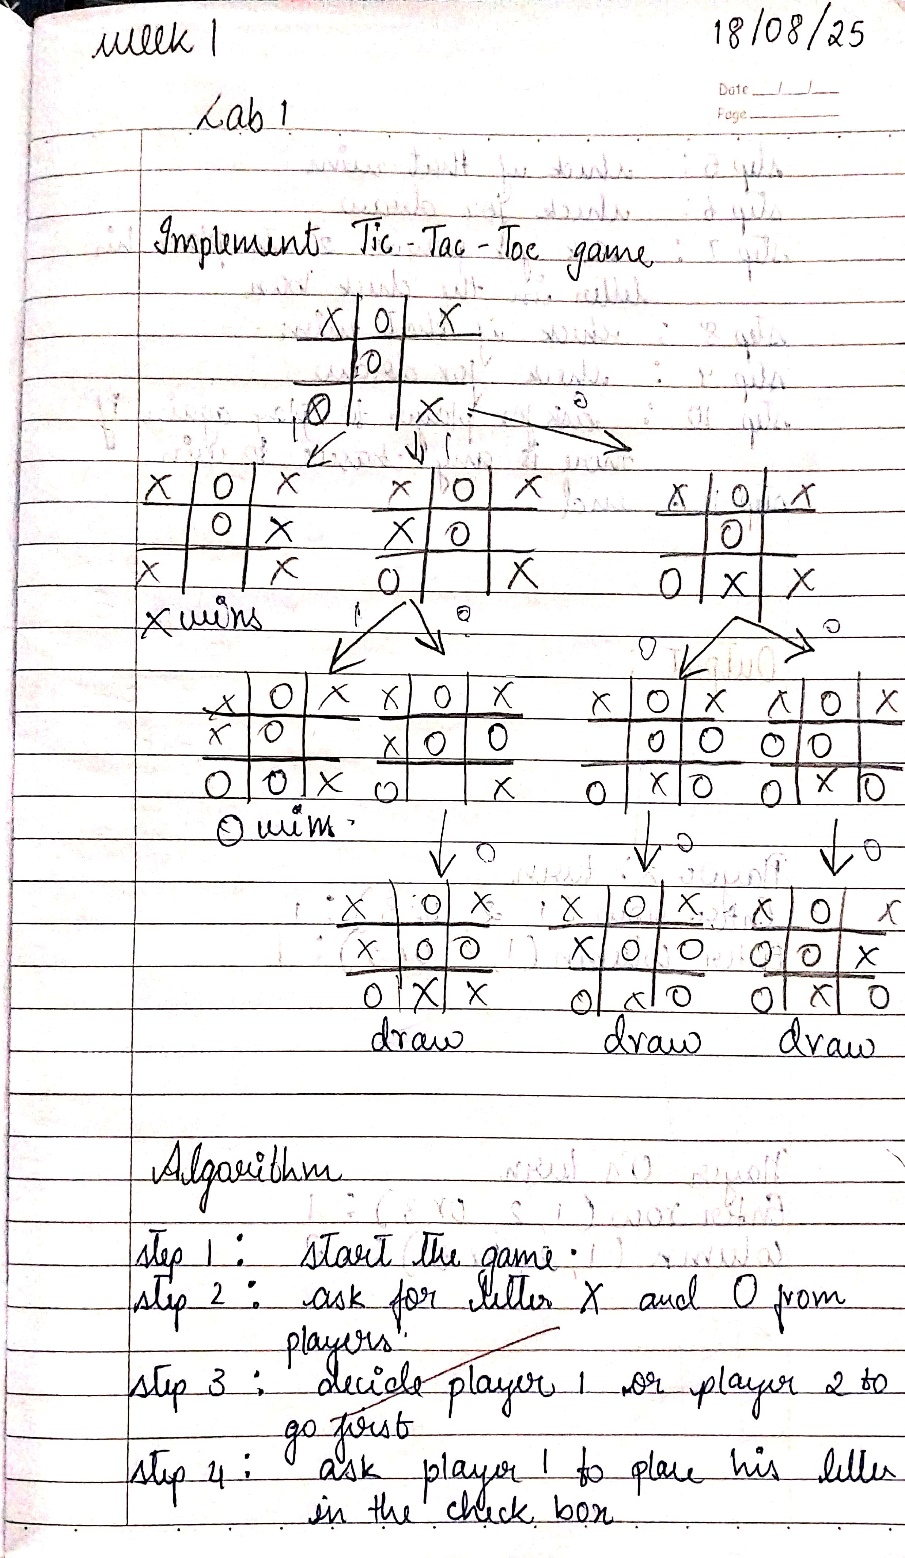 week 1
18/08/25
Date __/__/__
Page
Lab 1
Implement Tic-Tac-Toe game
X O X
O
O X
1 1 0
X O X X O X X O X
O X X O O
X X O X O X X
X wins
1 0 0 0
X O X X O X X O X X O X
X O X O O O O O O
O O X O X O X O O X O
O wins.
0 0 0
X O X X O X X O X
X O O X O O O O X
O X X O X O O X O
draw draw draw
Algorithm
step 1 : start the game.
step 2 : ask for letter X and O from
players.
step 3 : decide player 1 or player 2 to
go first
step 4 : ask player 1 to place his letter
in the check box